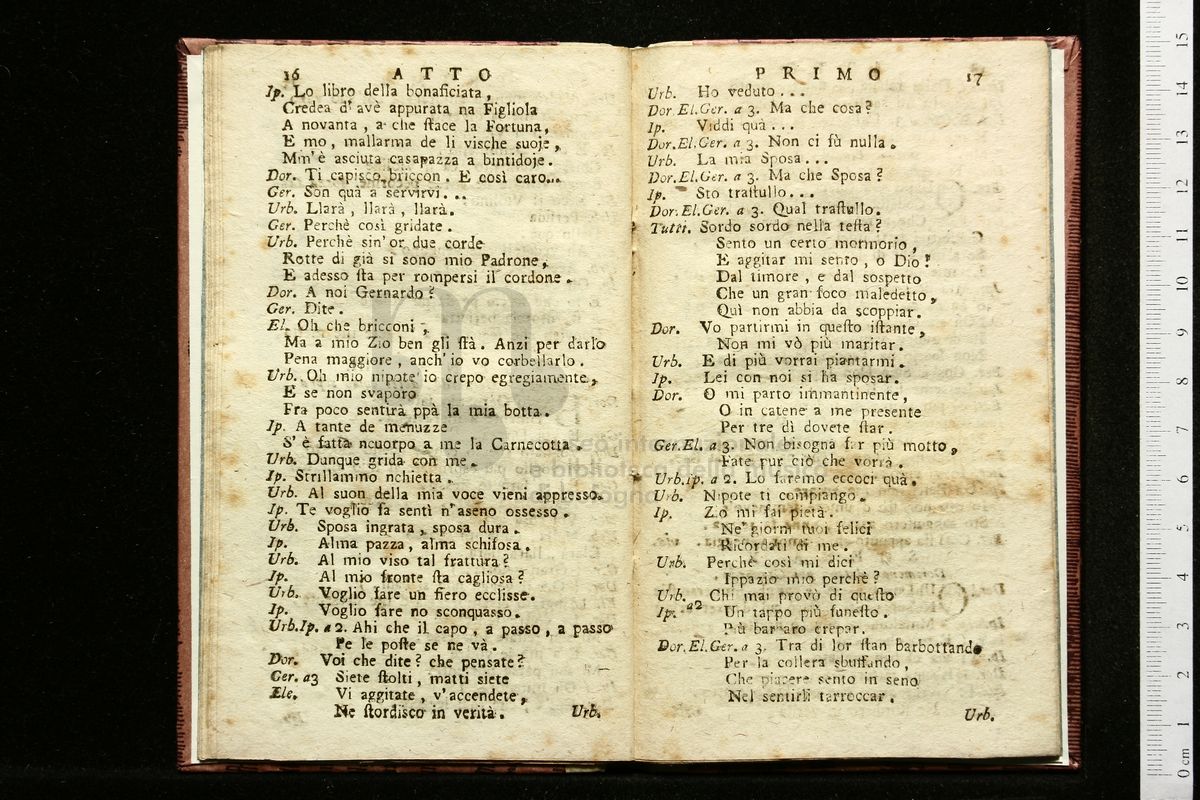 16 ATTO
Ip. Lo libro della bonaficiata,
Credea d'avè appurata na Figliola
A novanta, a che ſtace la Fortuna,
E mo, mallarma de li viſche ſuoje,
Mm'è aſciuta caſapazza a bintidoje.
Dor. Ti capiſco briccon. E così caro...
Ger. Son quà a ſervirvi...
Urb. Llarà, llarà, llarà.
Ger. Perchè così gridate.
Urb. Perchè ſin'or due corde
Rotte di già si ſono mio Padrone,
E adeſſo ſta per romperſi il cordone.
Dor. A noi Gernardo?
Ger. Dite.
El. Oh che bricconi,
Ma a mio Zio ben'gli ſtà. Anzi per darlo
Pena maggiore, anch'io vo corbellarlo.
Urb. Oh mio nipote io crepo egregiamente,
E ſe non ſvaporo
Fra poco ſentirà ppà la mia botta.
Ip. A tante de menuzze
S'è fatta ncuorpo a me la Carnecotta.
Urb. Dunque grida con me.
Ip. Strillammo nchietta.
Urb. Al ſuon della mia voce vieni appreſſo.
Ip. Te voglio fa ſentì n'aſeno oſſeſſo.
Urb. Spoſa ingrata, ſpoſa dura.
Ip. Alma pazza, alma ſchifoſa.
Urb. Al mio viſo tal frattura?
Ip. Al mio fronte ſta caglioſa?
Urb. Voglio fare un fiero eccliſſe.
Ip. Voglio fare no ſconquaſſo.
Urb.Ip. a 2. Ahi che il capo, a paſſo, a paſſo
Pe le poſte ſe ne và.
Dor. Voi che dite? che penſate?
Ger. a3 Siete ſtolti, matti ſiete
Ele. Vi aggitate, v'accendete,
Ne ſtordiſco in verità. Urb.
PRIMO 17
Urb. Ho veduto...
Dor.El.Ger. a 3. Ma che coſa?
Ip. Viddi quà...
Dor.El.Ger. a 3. Non ci fù nulla.
Urb. La mia Spoſa...
Dor.El.Ger. a 3. Ma che Spoſa?
Ip. Sto traſtullo...
Dor.El.Ger. a 3. Qual traſtullo.
Tutti. Sordo ſordo nella teſta?
Sento un certo mormorio,
E aggitar mi ſento, o Dio!
Dal timore, e dal ſoſpetto
Che un gran foco maledetto,
Quì non abbia da ſcoppiar.
Dor. Vo partirmi in queſto iſtante,
Non mi vò più maritar.
Urb. E di più vorrai piantarmi.
Ip. Lei con noi si ha ſpoſar.
Dor. O mi parto immantinente,
O in catene a me preſente
Per tre dì dovete ſtar.
Ger.El. a 3. Non biſogna far più motto,
Fate pur ciò che vorrà.
Urb.Ip. a 2. Lo faremo eccoci quà.
Urb. Nipote ti compiango.
Ip. Zio mi fai pietà.
Ne' giorni tuoi felici
Ricordati di me.
Urb. Perchè così mi dici
Ippazio mio perchè?
Urb. Chi mai provò di queſto
Ip. a2 Un tappo più funeſto.
Più barbaro crepar.
Dor.El.Ger. a 3. Tra di lor ſtan barbottando
Per la collera sbuffando,
Che piacere ſento in ſeno
Nel ſentirli tarroccar.
Urb.